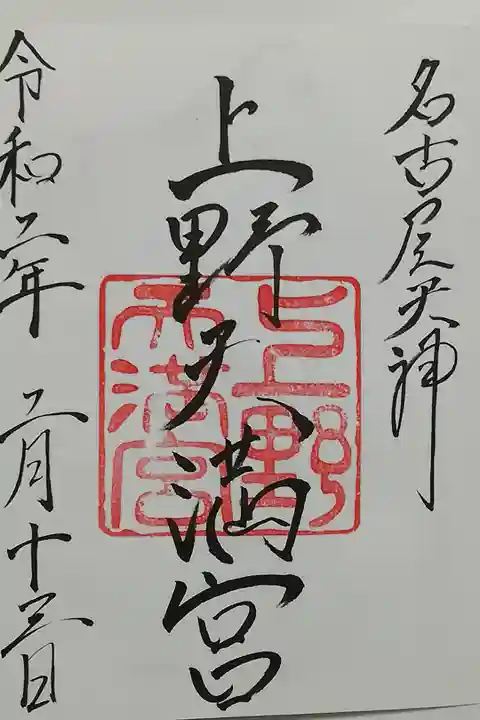 名古屋天神
上野天満宮
上野
天満宮
令和二年 二月十三日